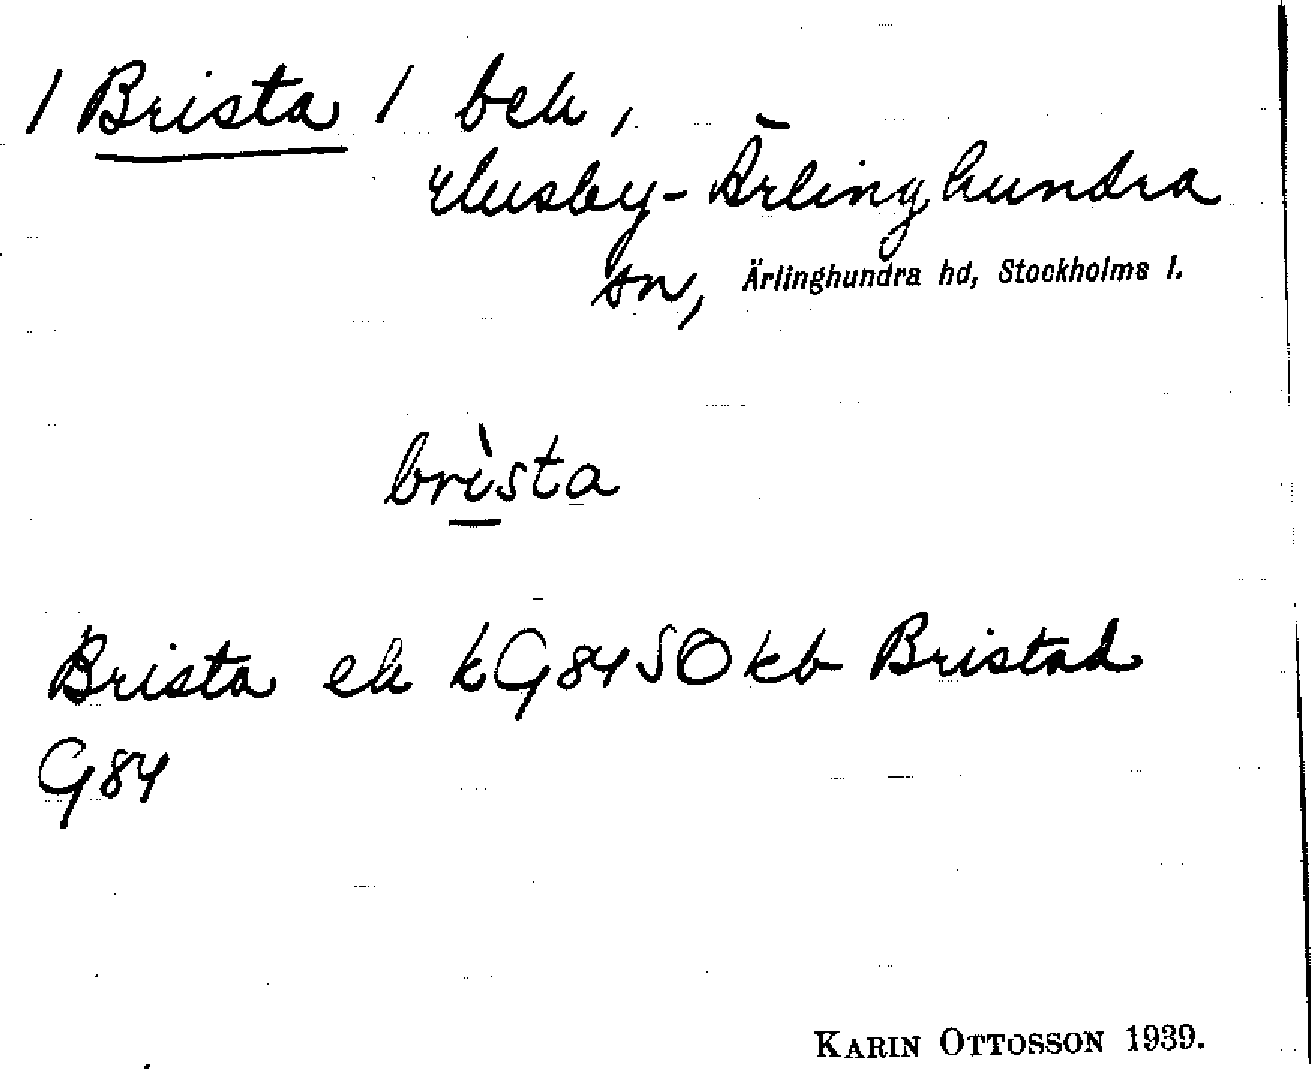 / Brista / beh,
Husby-Ärlinghundra
sn, Ärlinghundra hd, Stockholms l.
brìsta
Brista eh kG84 SO kb Bristad
G84
KARIN OTTOSSON 1939.